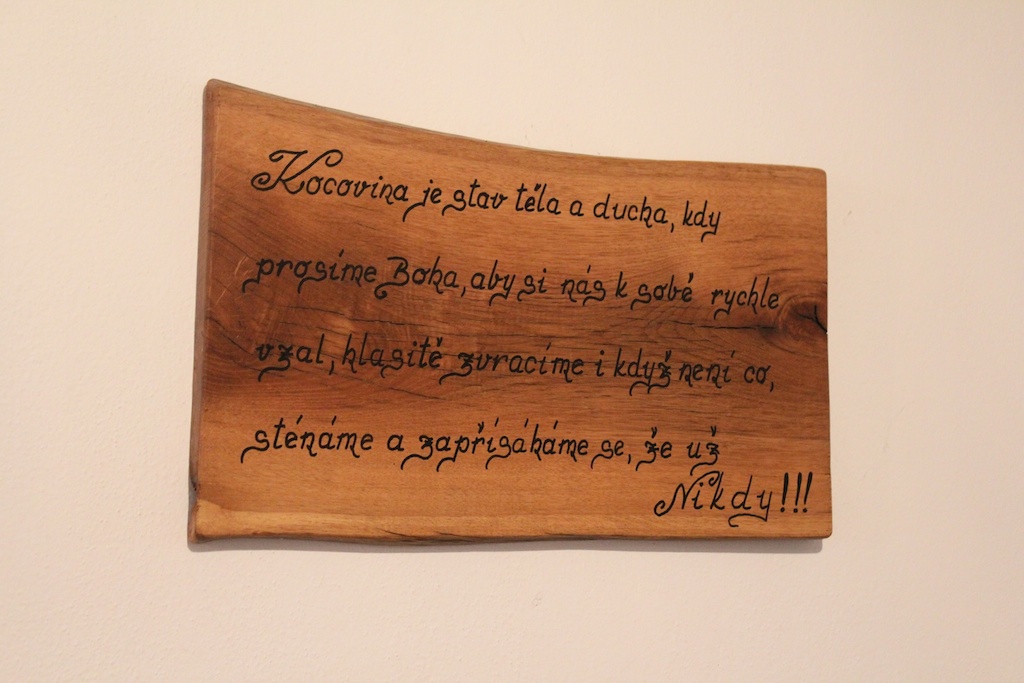 Kocovina je stav těla a ducha, kdy
prosíme Boha, aby si nás k sobě rychle
vzal, hlasitě zvracíme i když není co,
sténáme a zapřísáháme se, že už
Nikdy!!!